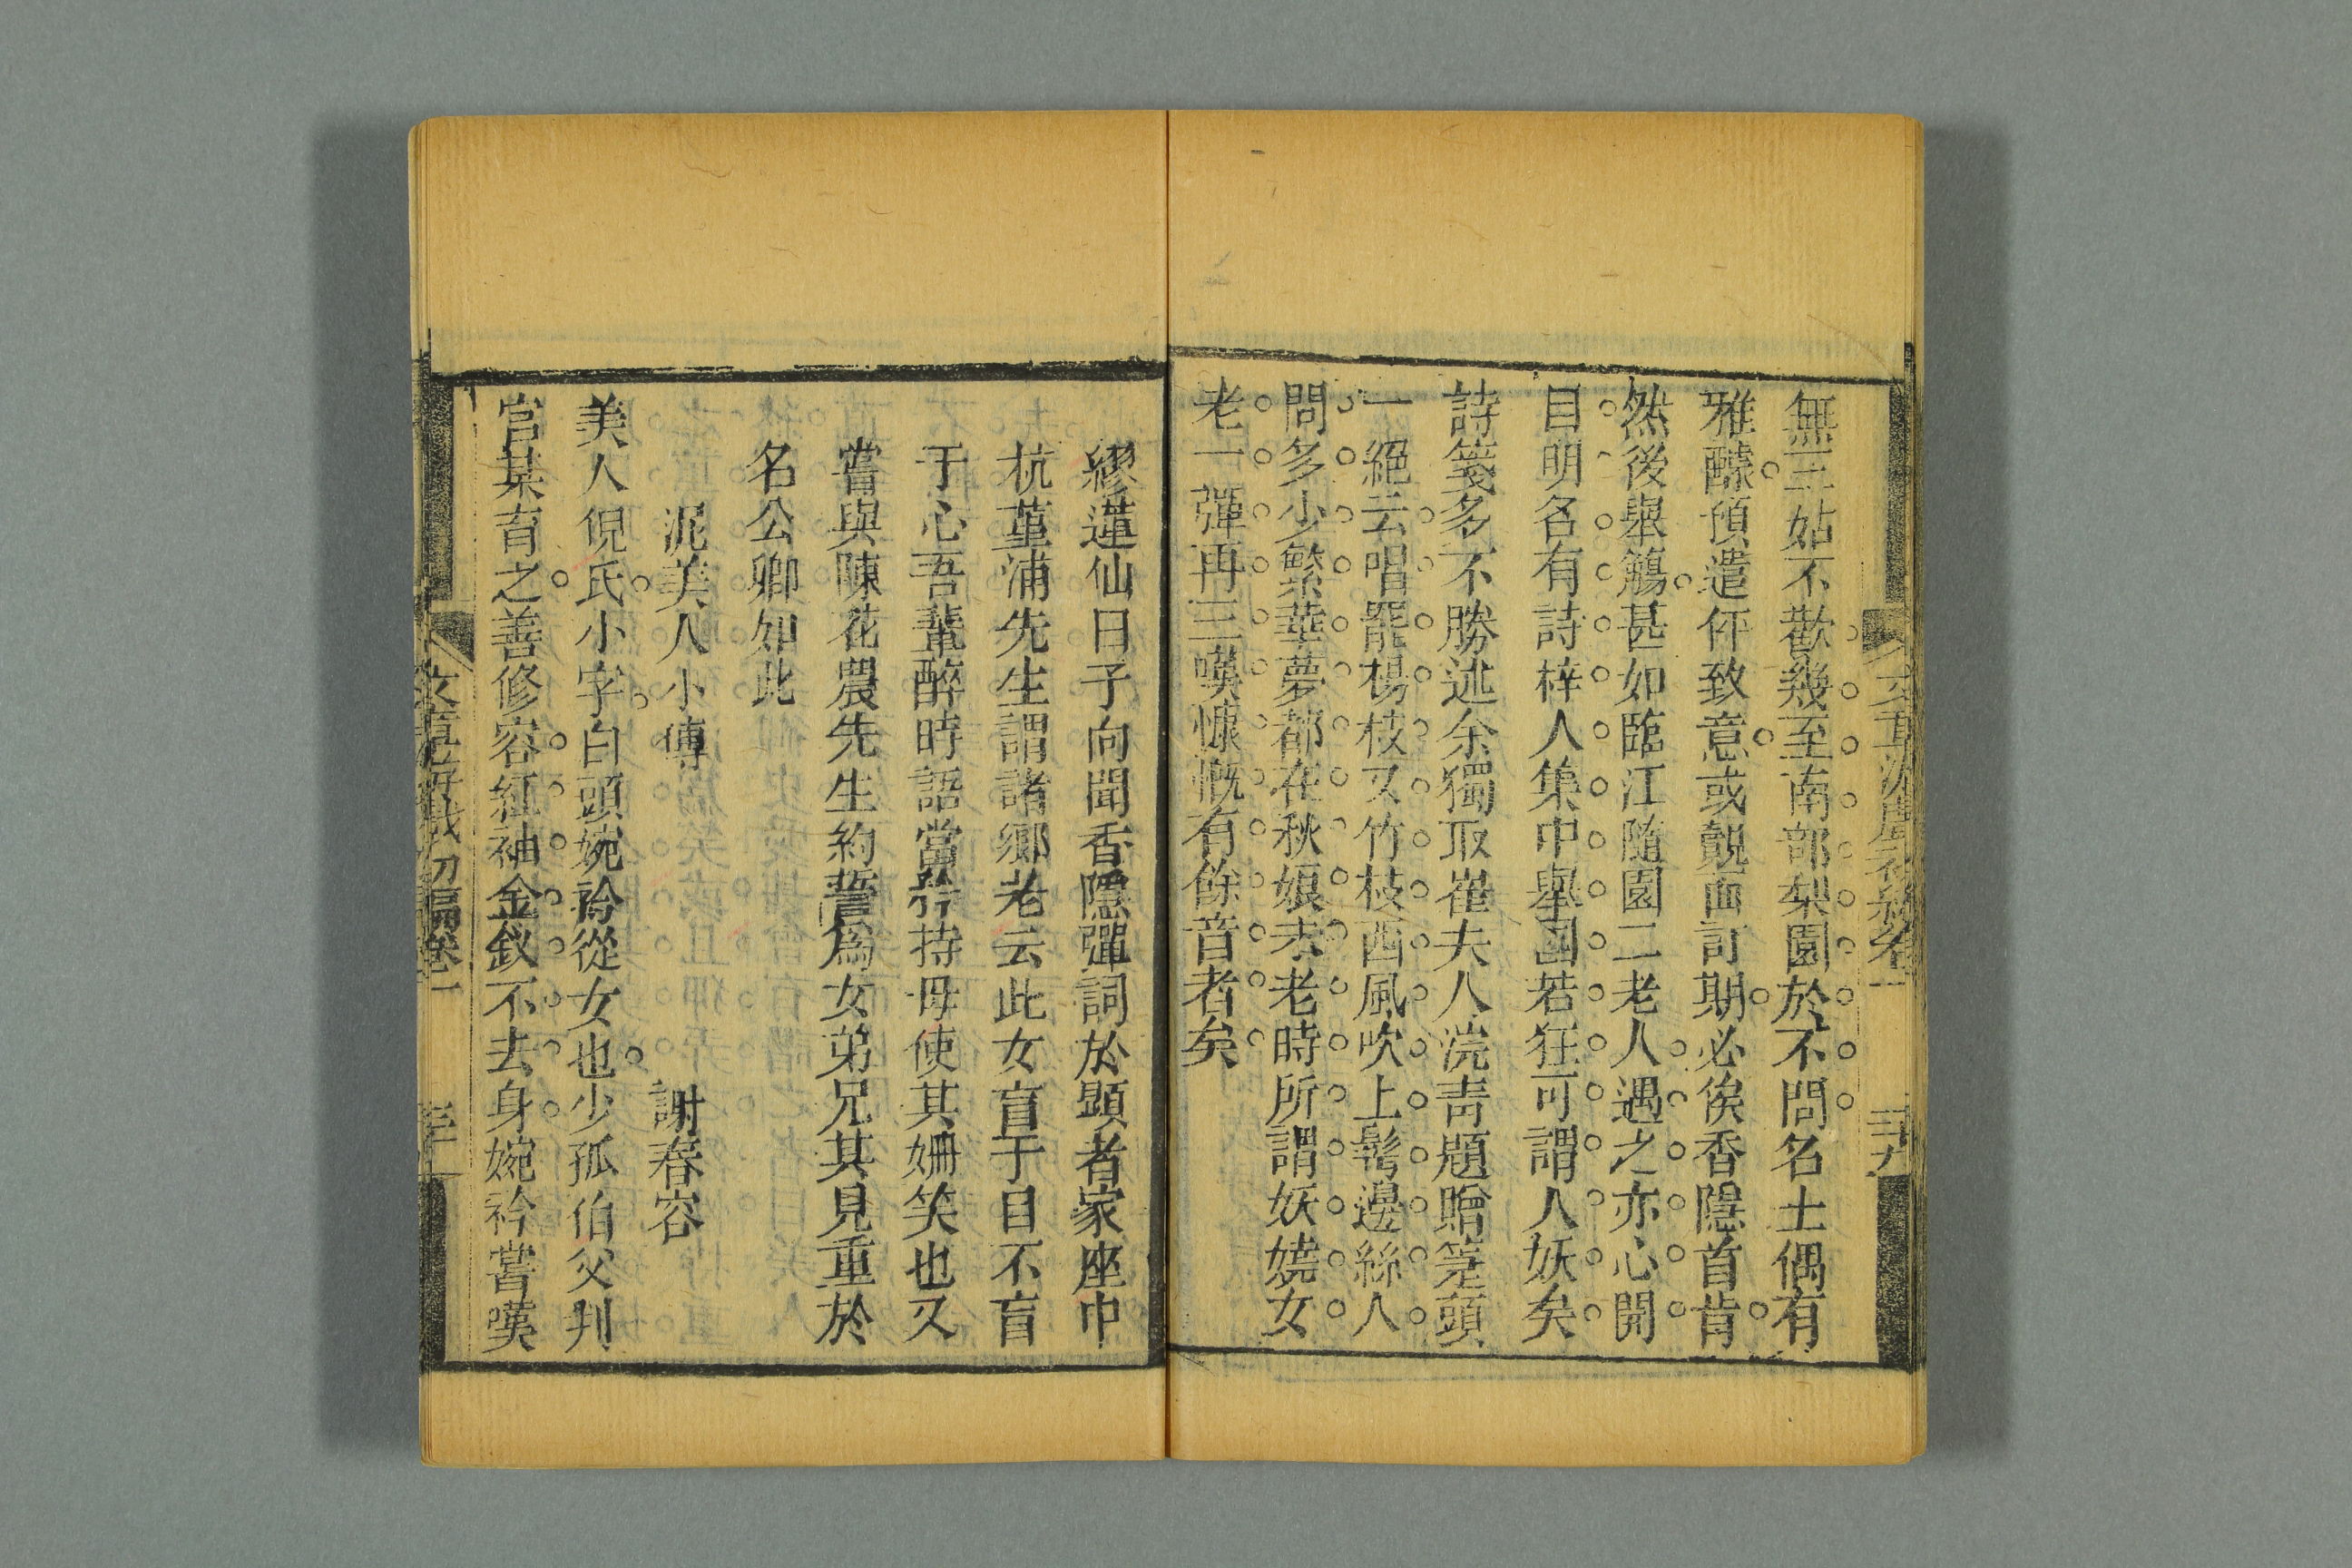 無三姑不歡幾至南部梨園於不問名士偶有
雅醵預遣伻致意或覿面訂期必俟香隱首肯
然後舉觴甚如臨江隨園二老人遇之亦心開
目明名有詩梓人集中舉國若狂可謂人妖矣
詩箋多不勝述余獨取崔夫人浣青題贈箑頭
一絕云唱罷楊枝又竹枝西風吹上鬢邊絲人
問多少繁華夢都在秋娘去老時所謂妖嬈女
老一彈再三嘆慷慨有餘音者矣
繆蓮仙曰予向聞香隱彈詞於顯者家座中
杭堇浦先生謂諸鄉老云此女盲于目不盲
于心吾輩醉時語當矜持毋使其姍笑也又
嘗與陳花農先生約誓爲女弟兄其見重於
名公卿如此
泥美人小傳 謝春容
美人倪氏小字白頭婉衿從女也少孤伯父判
官某育之善修容紅袖金釵不去身婉衿嘗嘆
文章游戲初編卷一